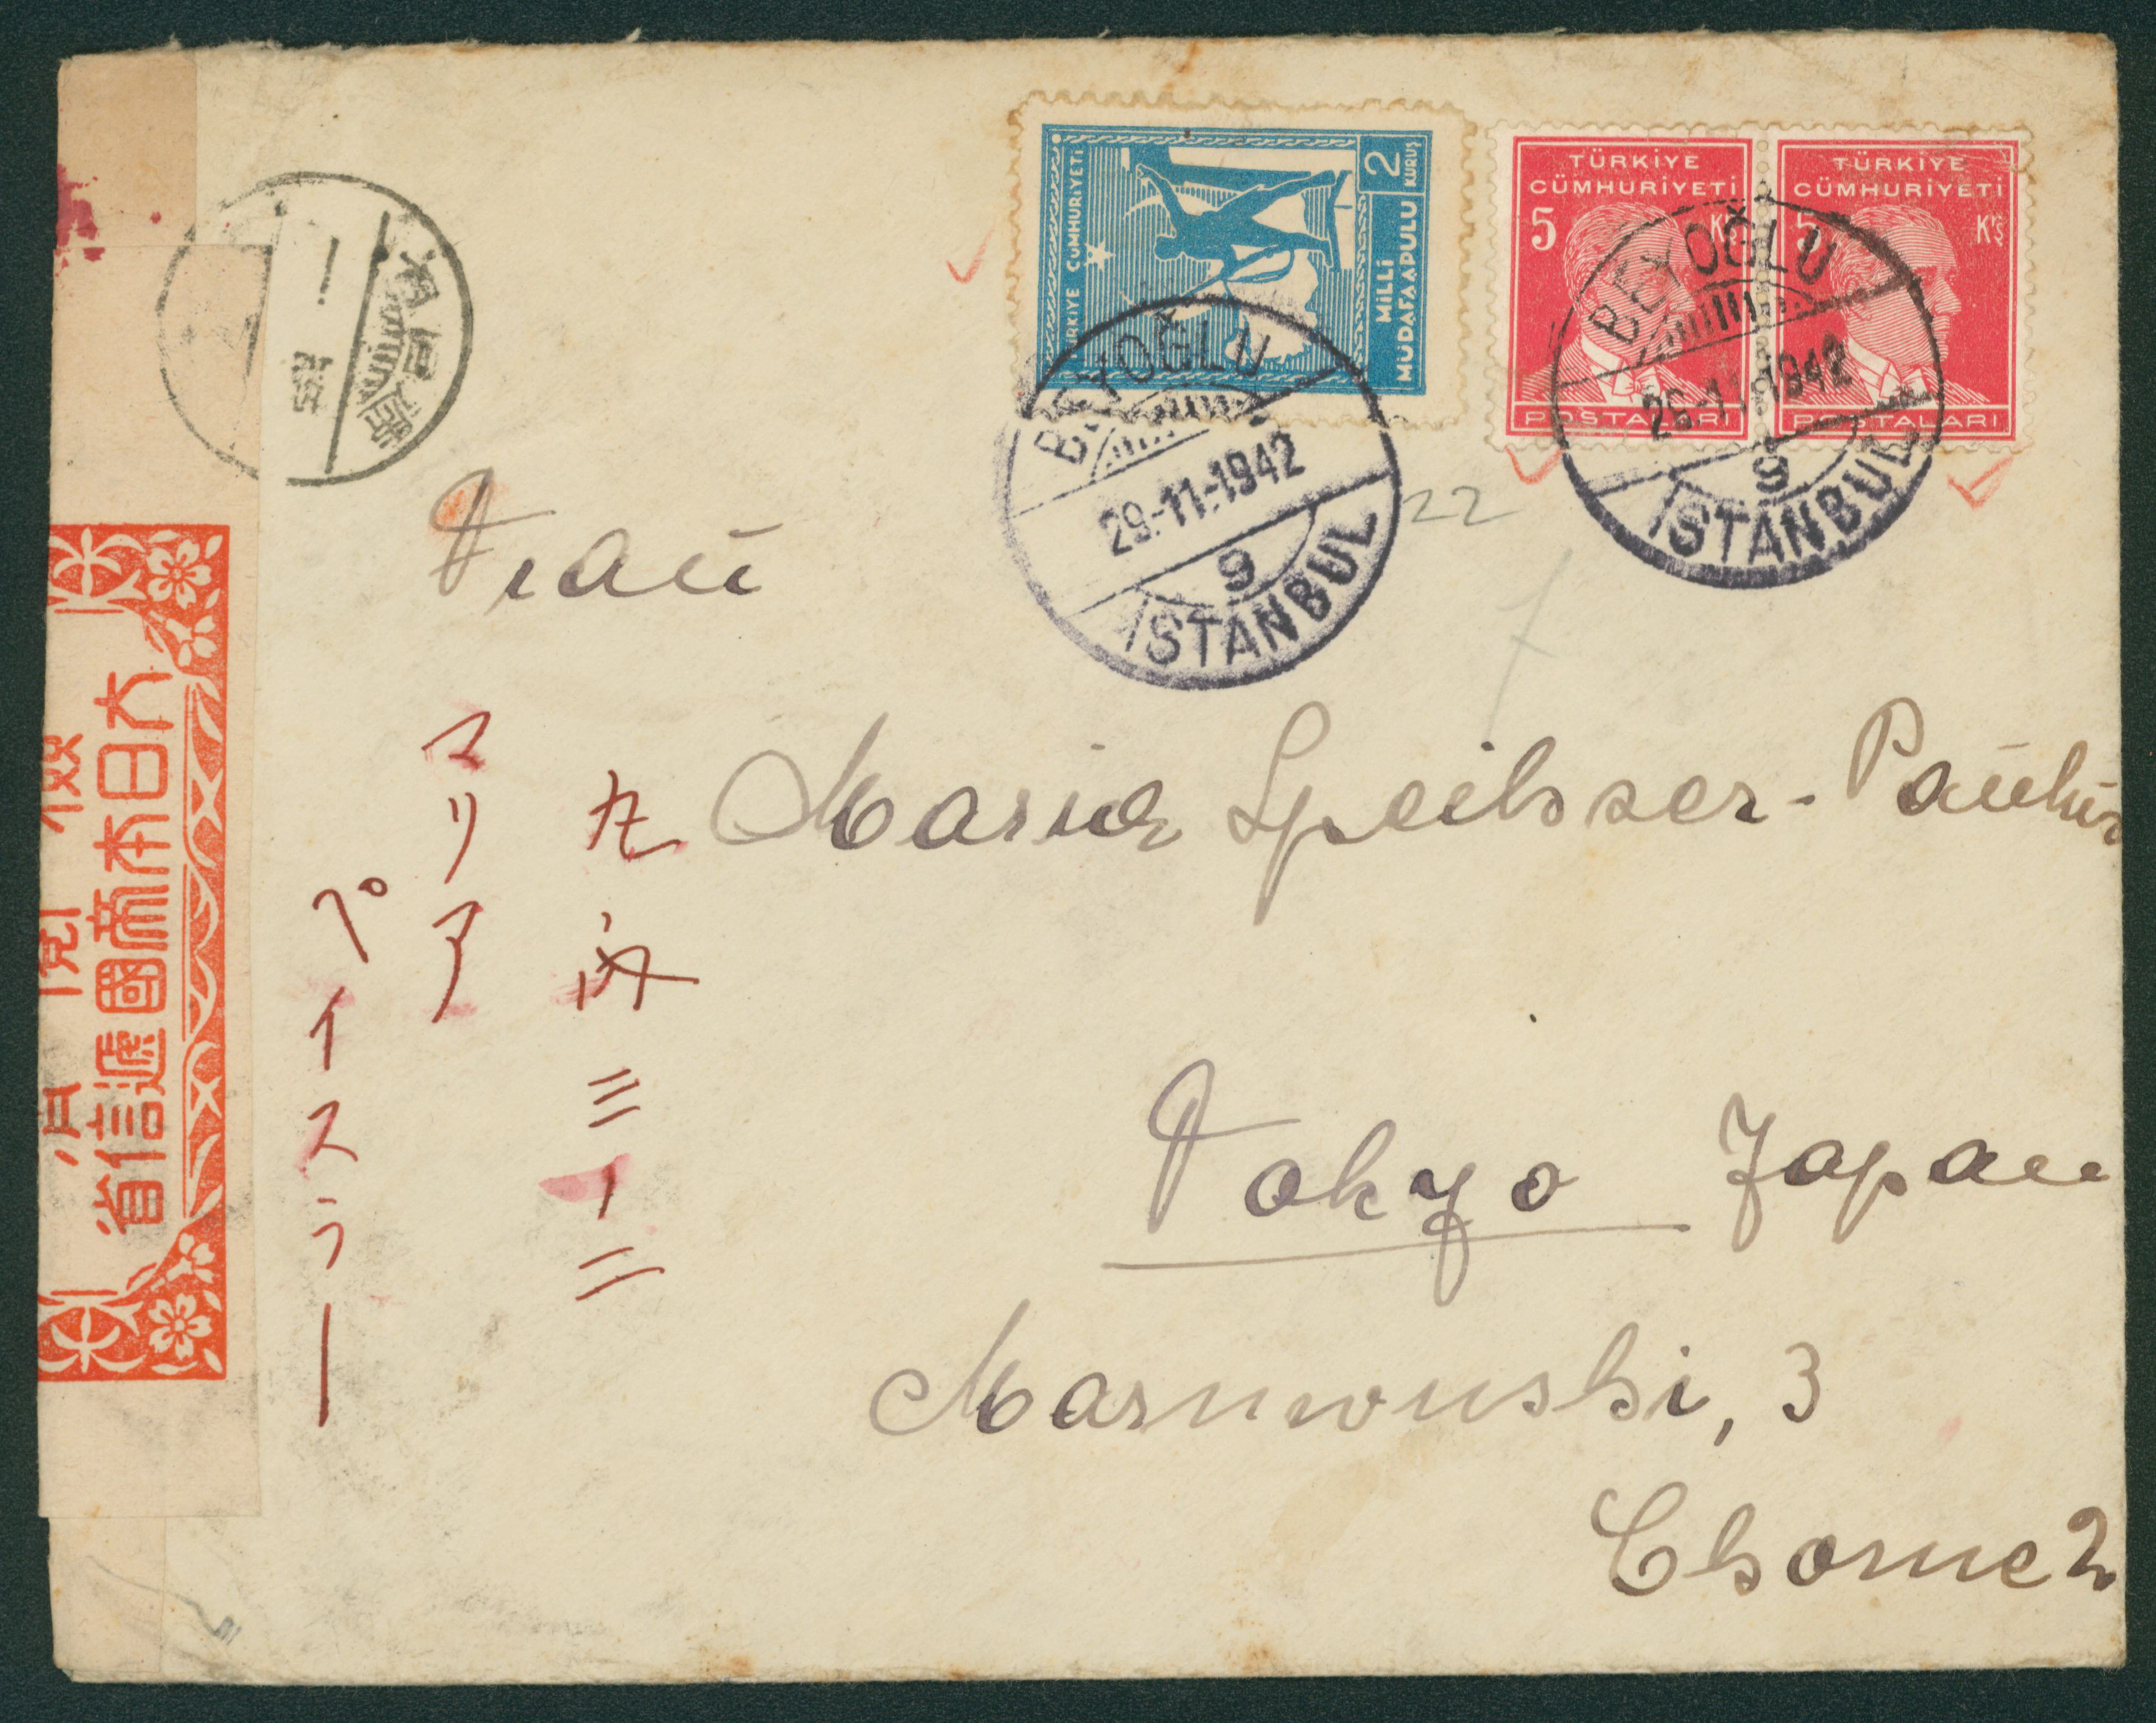 TÜRKİYE CÜMHURİYETİ
2 KURUŞ
MİLLİ
MÜDAFAA PULU
TÜRKİYE
CÜMHURİYETİ
5 Kş
POSTALARI
TÜRKİYE
CÜMHURİYETİ
5 Kş
POSTALARI
BEYOĞLU
29-11-1942
9
İSTANBUL
BEYOĞLU
1942
9
İSTANBUL
22
Frau
Maria Speihser-Pauker
Tokyo Japan
Marunouski, 3
Chome 2
丸ノ内三ノ二
マリア
ペイスラー
大日本帝國遞信省